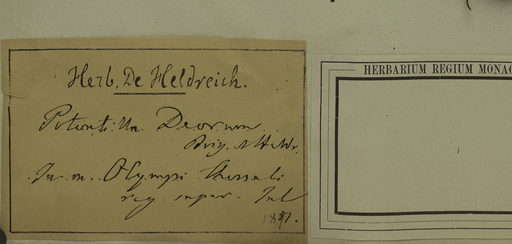 Herb. De Heldreich.
Potentilla Deorum
Boiss. & Heldr.
In m. Olympi Thessali
reg. super. Jul
1851.
HERBARIUM REGIUM MONAC